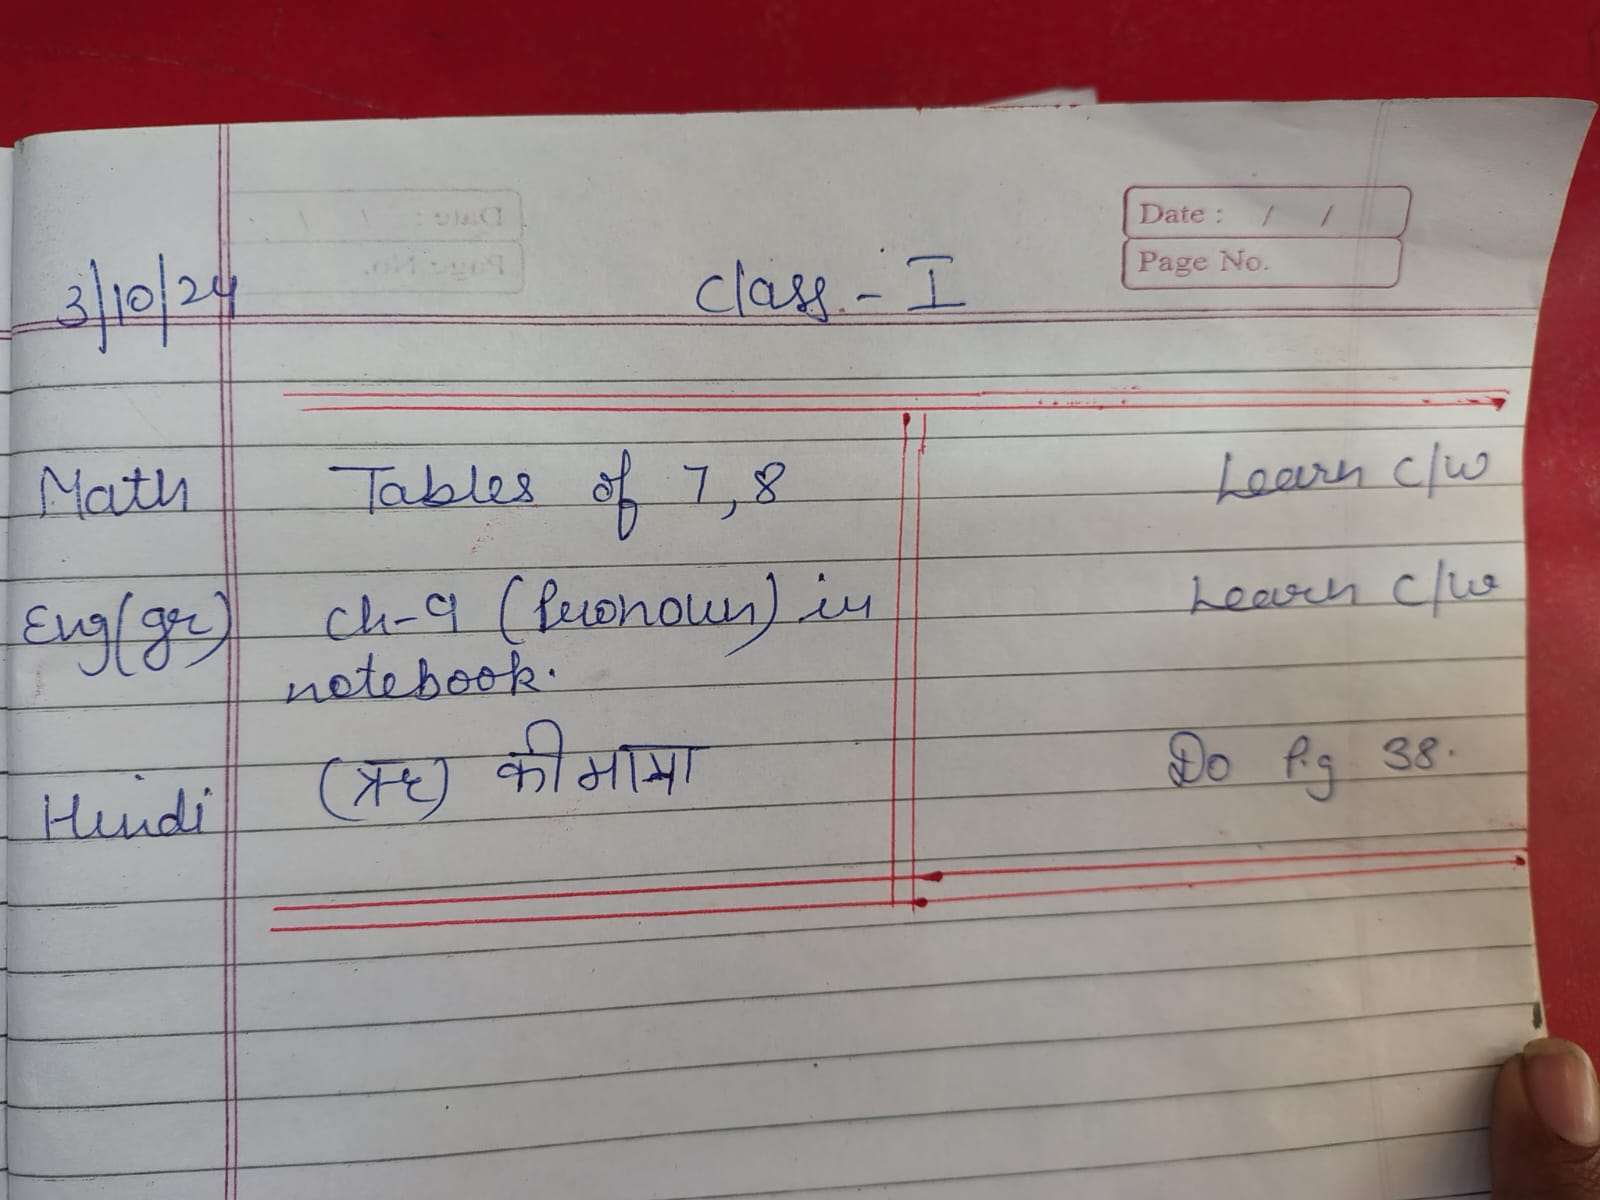 Date : / /
Page No.
3/10/24 Class - I
Math Tables of 7, 8 Learn c/w
Eng(gr) Ch-9 (Pronoun) in Learn c/w
notebook.
Hindi (ऋ) की मात्रा Do Pg 38.